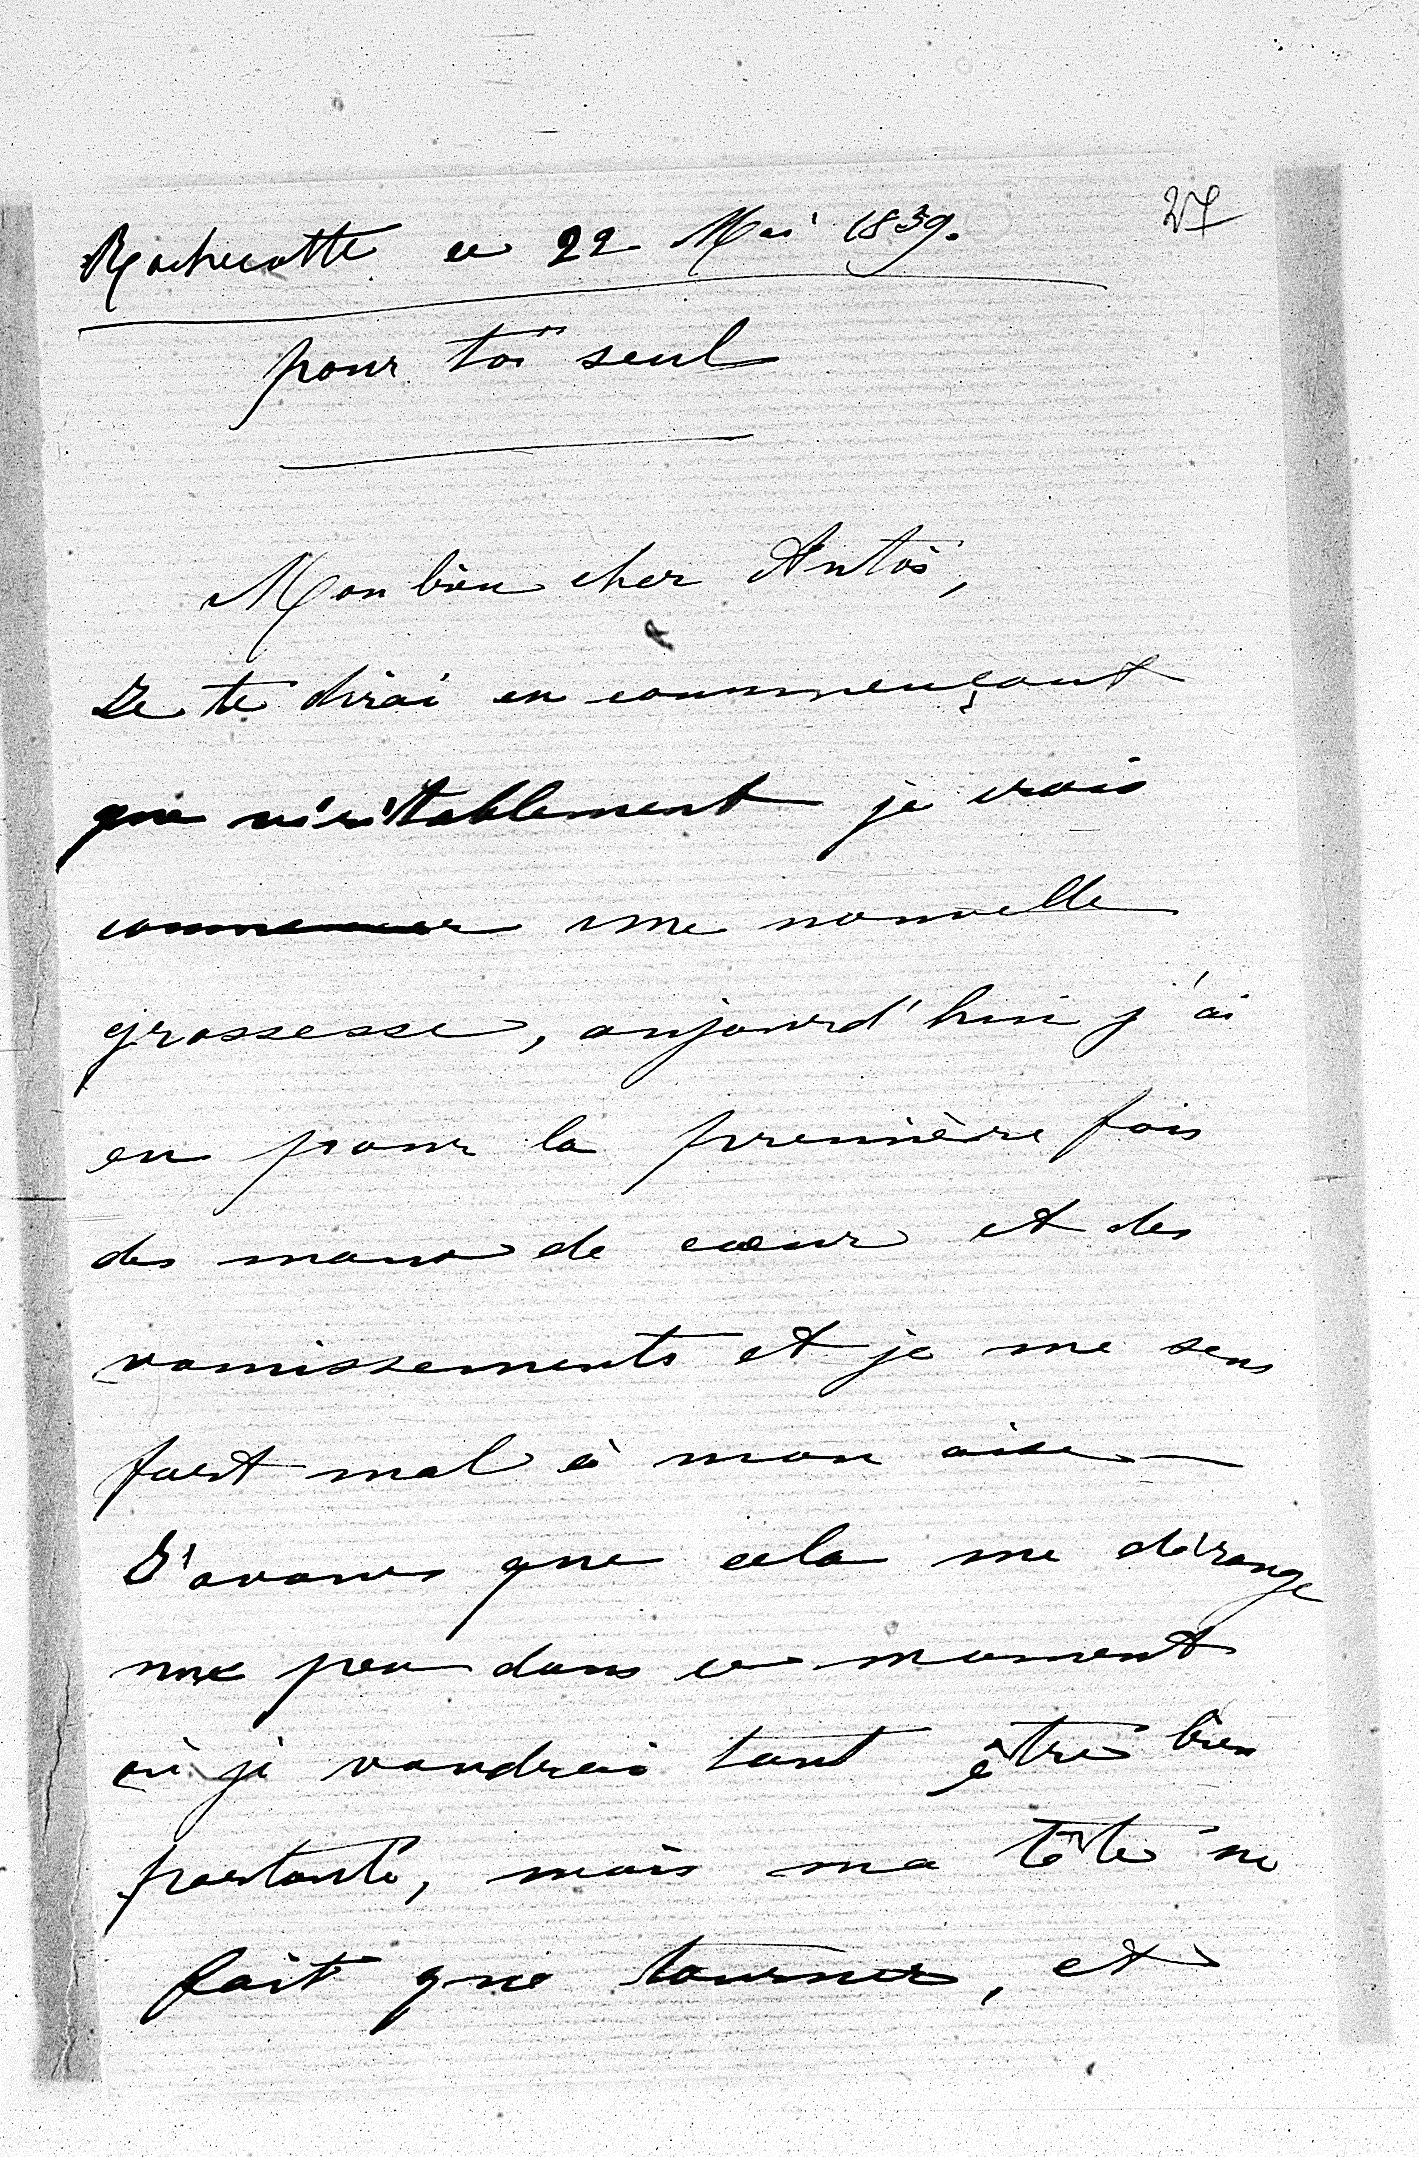 27
Rochecotte ce 22 Mai 1839.
pour toi seul
Mon bien cher Antos,
Je te dirai en commençant
que véritablement je crois
commencer une nouvelle
grossesse, aujourd'hui j'ai
eu pour la première fois
des maux de cœur et des
vomissements et je me sens
fort mal à mon aise —
J'avoues que cela me dérange
un peu dans ce moment
où je voudrais tant être bien
portante, mais ma tête ne
fait que tourner, et